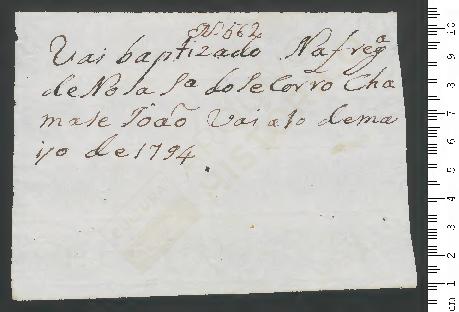 N. 662
Vai baptizado Nafregª
de Nosa Sª do Se Corro Cha
mase João Vai a 10 de ma
iyo de 1794.
cm 1 2 3 4 5 6 7 8 9 10